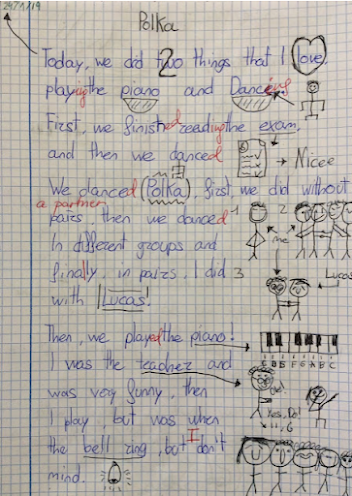 29/1/19
Polka
Today, we did two 2 things that I love,
playing the piano and Dancing
First, we finished reading the exam,
and then we danced → Nicee
We danced (Polka), first we did without
a partner
pairs, then we danced 1 2
In different groups and me
finally, in pairs, I did 3
with Lucas! Lucas
Then, we played the piano!
I was the teacher and
was very funny, then Yes, Do!
I play, but was when
the bell ring, but I don't
mind.